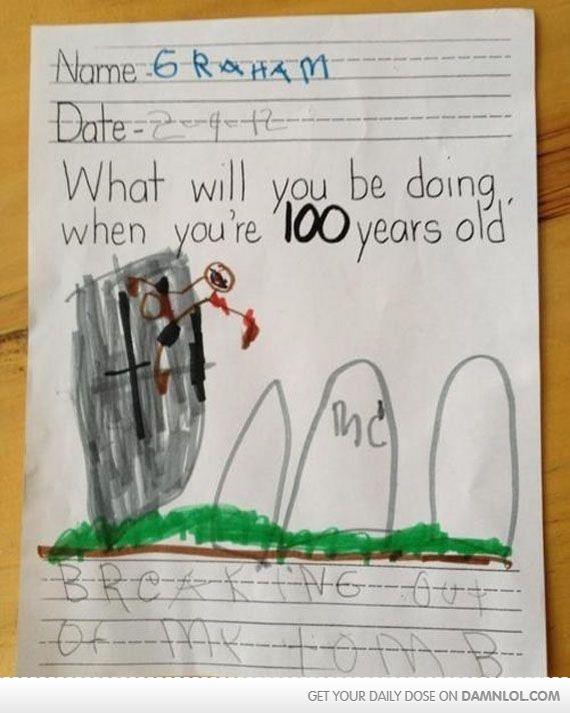 Name - GRAHAM
Date - 2-9-12
What will you be doing,
when you're 100 years old
mc
BREAKING OUT
OF MY TOMB
GET YOUR DAILY DOSE ON DAMNLOL.COM